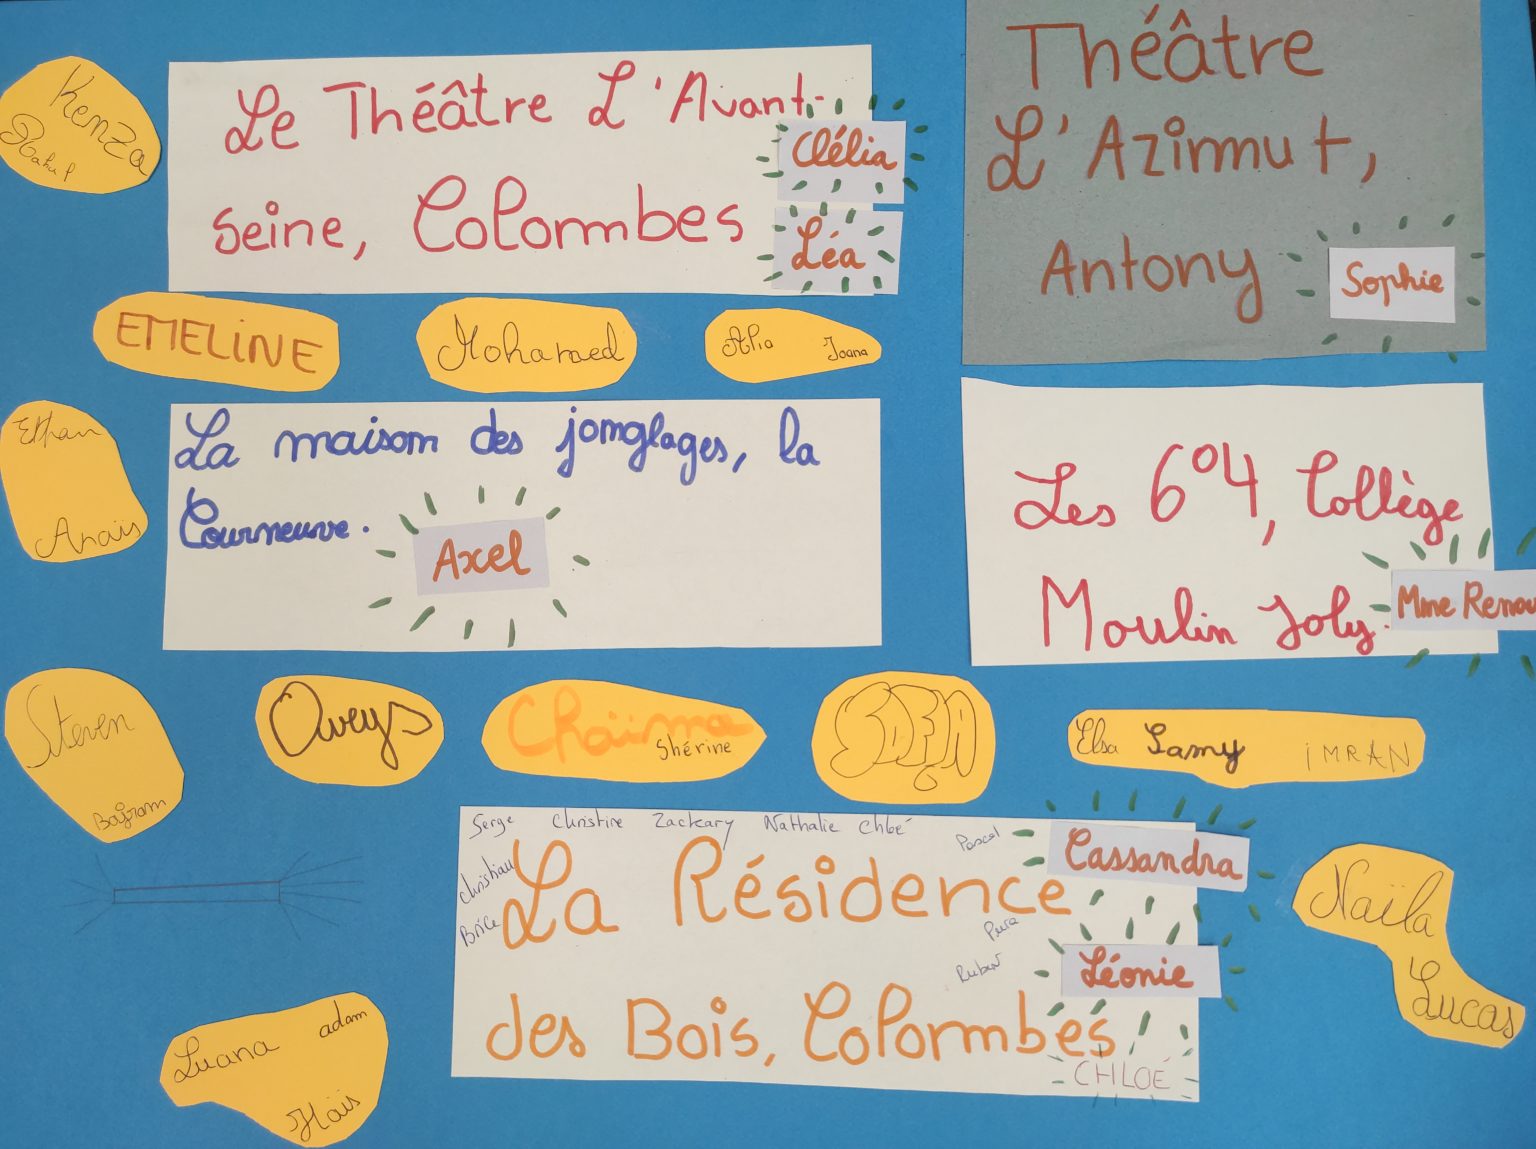 Kenza
Le Théâtre L'Avant-
seine, Colombes
Clélia
Léa
Théâtre
L'Azimut,
Antony
Sophie
EMELINE
Mohamed
Alia
Joana
Ethan
Anaïs
La maison des jonglages, la
Courneuve.
Axel
Les 6°4, Collège
Moulin Joly.
Mme Renou
Steven
Bajram
Oveys
Chaïma
Shérine
SOFIA
Elsa Samy IMRAN
Serge Christine Zackary Nathalie Chloé
Pascal
Christian
Brice
La Résidence
des Bois, Colombes
Cassandra
Ruben
Léonie
CHLOÉ
Naïla
Lucas
Luana
adam